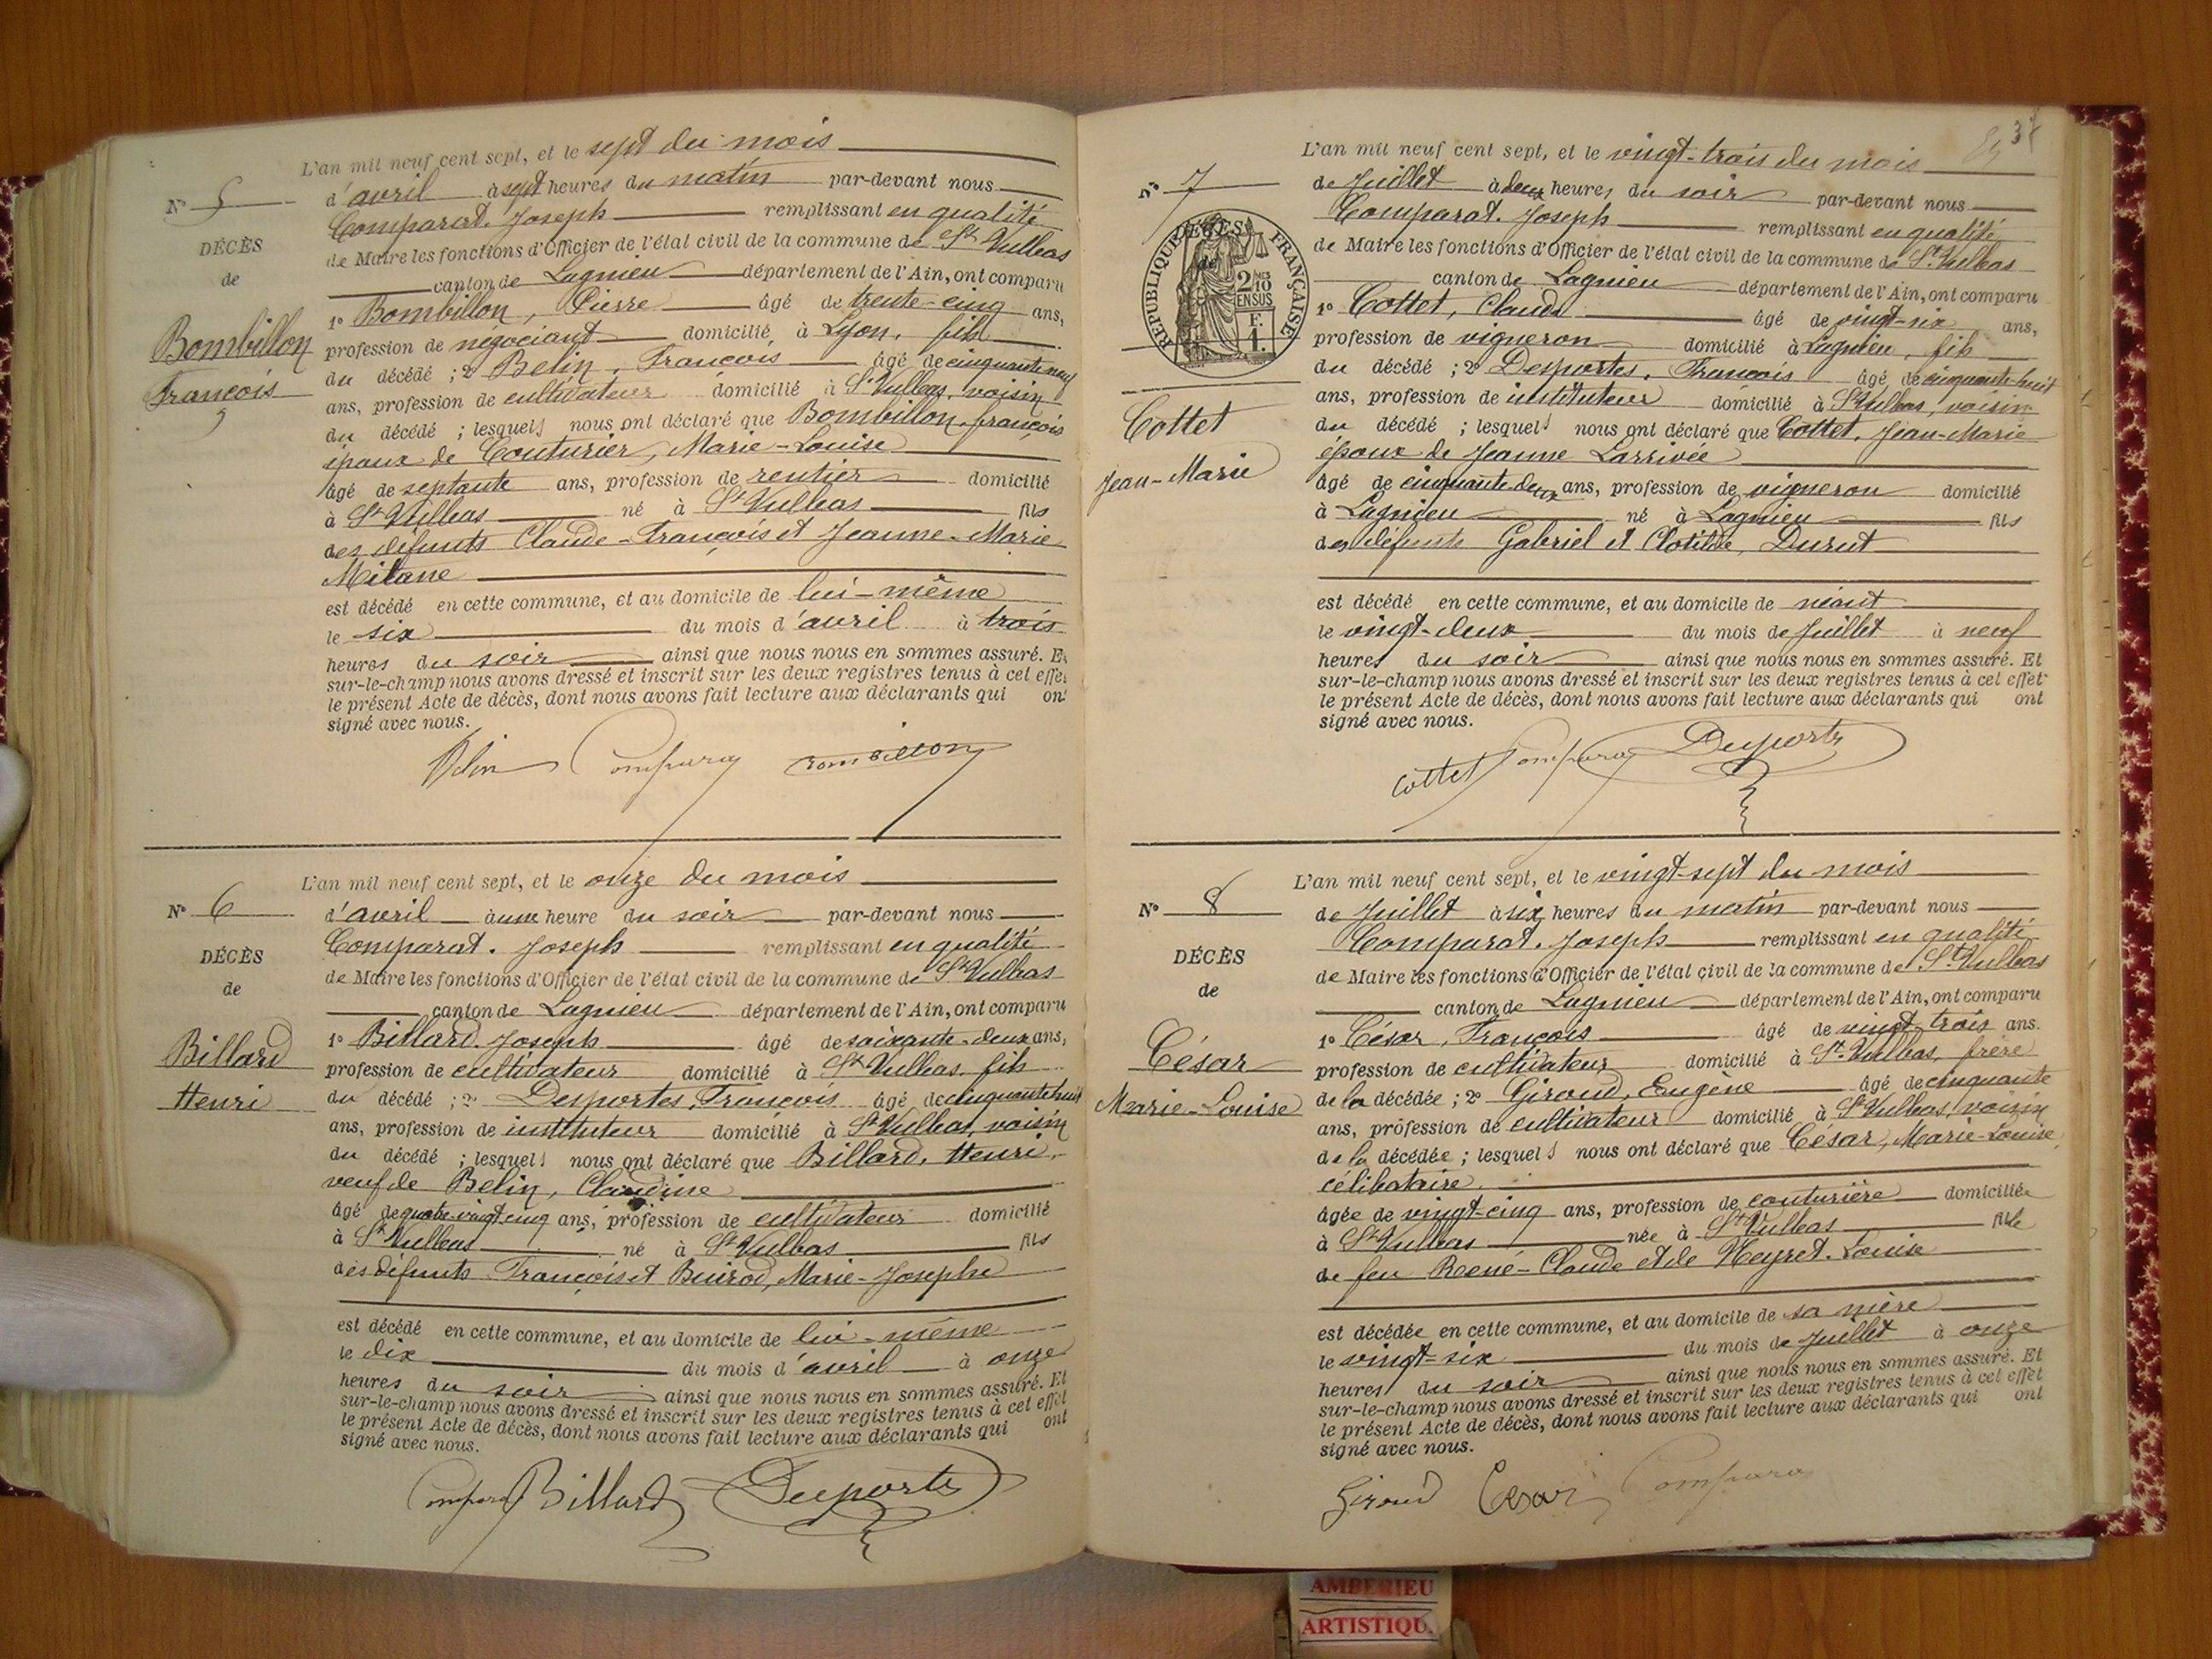 L'an mil neuf cent sept, et le sept du mois
Nº 5
d'avril à sept heures du matin par-devant nous
Comparat. Joseph remplissant en qualité
DÉCÈS
de Maire les fonctions d'Officier de l'état civil de la commune de St Vulbas
de
canton de Lagnieu département de l'Ain, ont comparu
1º Bombillon, Pierre âgé de trente-cinq ans,
Bombillon
profession de négociant domicilié à Lyon, fils
François
du décédé ; 2º Belin, François âgé de cinquante neuf
ans, profession de cultivateur domicilié à St Vulbas, voisin
du décédé ; lesquels nous ont déclaré que Bombillon, françois
époux de Couturier, Marie-Louise
âgé de septante ans, profession de rentier domicilié
à St Vulbas né à St Vulbas fils
des défunts Claude-François et Jeanne-Marie
Milane
est décédé en cette commune, et au domicile de lui-même
le six du mois d'avril à trois
heures du soir ainsi que nous nous en sommes assuré. Et
sur-le-champ nous avons dressé et inscrit sur les deux registres tenus à cet effet
le présent Acte de décès, dont nous avons fait lecture aux déclarants qui ont
signé avec nous.
Belin Comparat Bombillon
L'an mil neuf cent sept, et le onze du mois
Nº 6
d'avril à une heure du soir par-devant nous
Comparat. Joseph remplissant en qualité
DÉCÈS
de Maire les fonctions d'Officier de l'état civil de la commune de St Vulbas
de
canton de Lagnieu département de l'Ain, ont comparu
Billard
1º Billard. Joseph âgé de soixante-deux ans,
profession de cultivateur domicilié à St Vulbas, fils
Henri
du décédé ; 2º Desportes, François âgé de cinquante huit
ans, profession de instituteur domicilié à St Vulbas, voisin
du décédé ; lesquels nous ont déclaré que Billard, Henri,
veuf de Belin, Claudine
âgé de quatre-vingt cinq ans, profession de cultivateur domicilié
à St Vulbas né à St Vulbas fils
des défunts François et Buirod, Marie-Josephe
est décédé en cette commune, et au domicile de lui-même
le dix du mois d'avril à onze
heures du soir ainsi que nous nous en sommes assuré. Et
sur-le-champ nous avons dressé et inscrit sur les deux registres tenus à cet effet
le présent Acte de décès, dont nous avons fait lecture aux déclarants qui ont
signé avec nous.
Comparat Billard Desportes
L'an mil neuf cent sept, et le vingt-trois du mois
Nº 7
de Juillet à deux heures du soir par-devant nous
Comparat. Joseph remplissant en qualité
DÉCÈS
de
RÉPUBLIQUE FRANÇAISE
2/10 EN SUS
F. 1.
de Maire les fonctions d'Officier de l'état civil de la commune de St Vulbas
canton de Lagnieu département de l'Ain, ont comparu
1º Cottet, Claude âgé de vingt-six ans,
profession de vigneron domicilié à Lagnieu, fils
du décédé ; 2º Desportes, François âgé de cinquante-huit
Cottet
ans, profession de instituteur domicilié à St Vulbas, voisin
du décédé ; lesquels nous ont déclaré que Cottet, Jean-Marie
Jean-Marie
époux de Jeanne Larrivée
âgé de cinquante-deux ans, profession de vigneron domicilié
à Lagnieu né à Lagnieu fils
des défunts Gabriel et Clotilde, Durut
est décédé en cette commune, et au domicile de néant
le vingt-deux du mois de Juillet à neuf
heures du soir ainsi que nous nous en sommes assuré. Et
sur-le-champ nous avons dressé et inscrit sur les deux registres tenus à cet effet
le présent Acte de décès, dont nous avons fait lecture aux déclarants qui ont
signé avec nous.
Cottet Comparat Desportes
L'an mil neuf cent sept, et le vingt-sept du mois
Nº 8
de Juillet à six heures du matin par-devant nous
Comparat. Joseph remplissant en qualité
DÉCÈS
de Maire les fonctions d'Officier de l'état civil de la commune de St Vulbas
de
canton de Lagnieu département de l'Ain, ont comparu
César
1º César, François âgé de vingt trois ans.
profession de cultivateur domicilié à St Vulbas, frère
Marie-Louise
de la décédée ; 2º Giroud, Eugène âgé de cinquante
ans, profession de cultivateur domicilié à St Vulbas, voisin
de la décédée ; lesquels nous ont déclaré que César, Marie-Louise,
célibataire.
âgée de vingt-cinq ans, profession de couturière domiciliée
à St Vulbas née à St Vulbas fille
de feu René-Claude et de Heyret. Louise
est décédée en cette commune, et au domicile de sa mère
le vingt-six du mois de Juillet à onze
heures du soir ainsi que nous nous en sommes assuré. Et
sur-le-champ nous avons dressé et inscrit sur les deux registres tenus à cet effet
le présent Acte de décès, dont nous avons fait lecture aux déclarants qui ont
signé avec nous.
Giroud César Comparat
AMBERIEU
ARTISTIQU